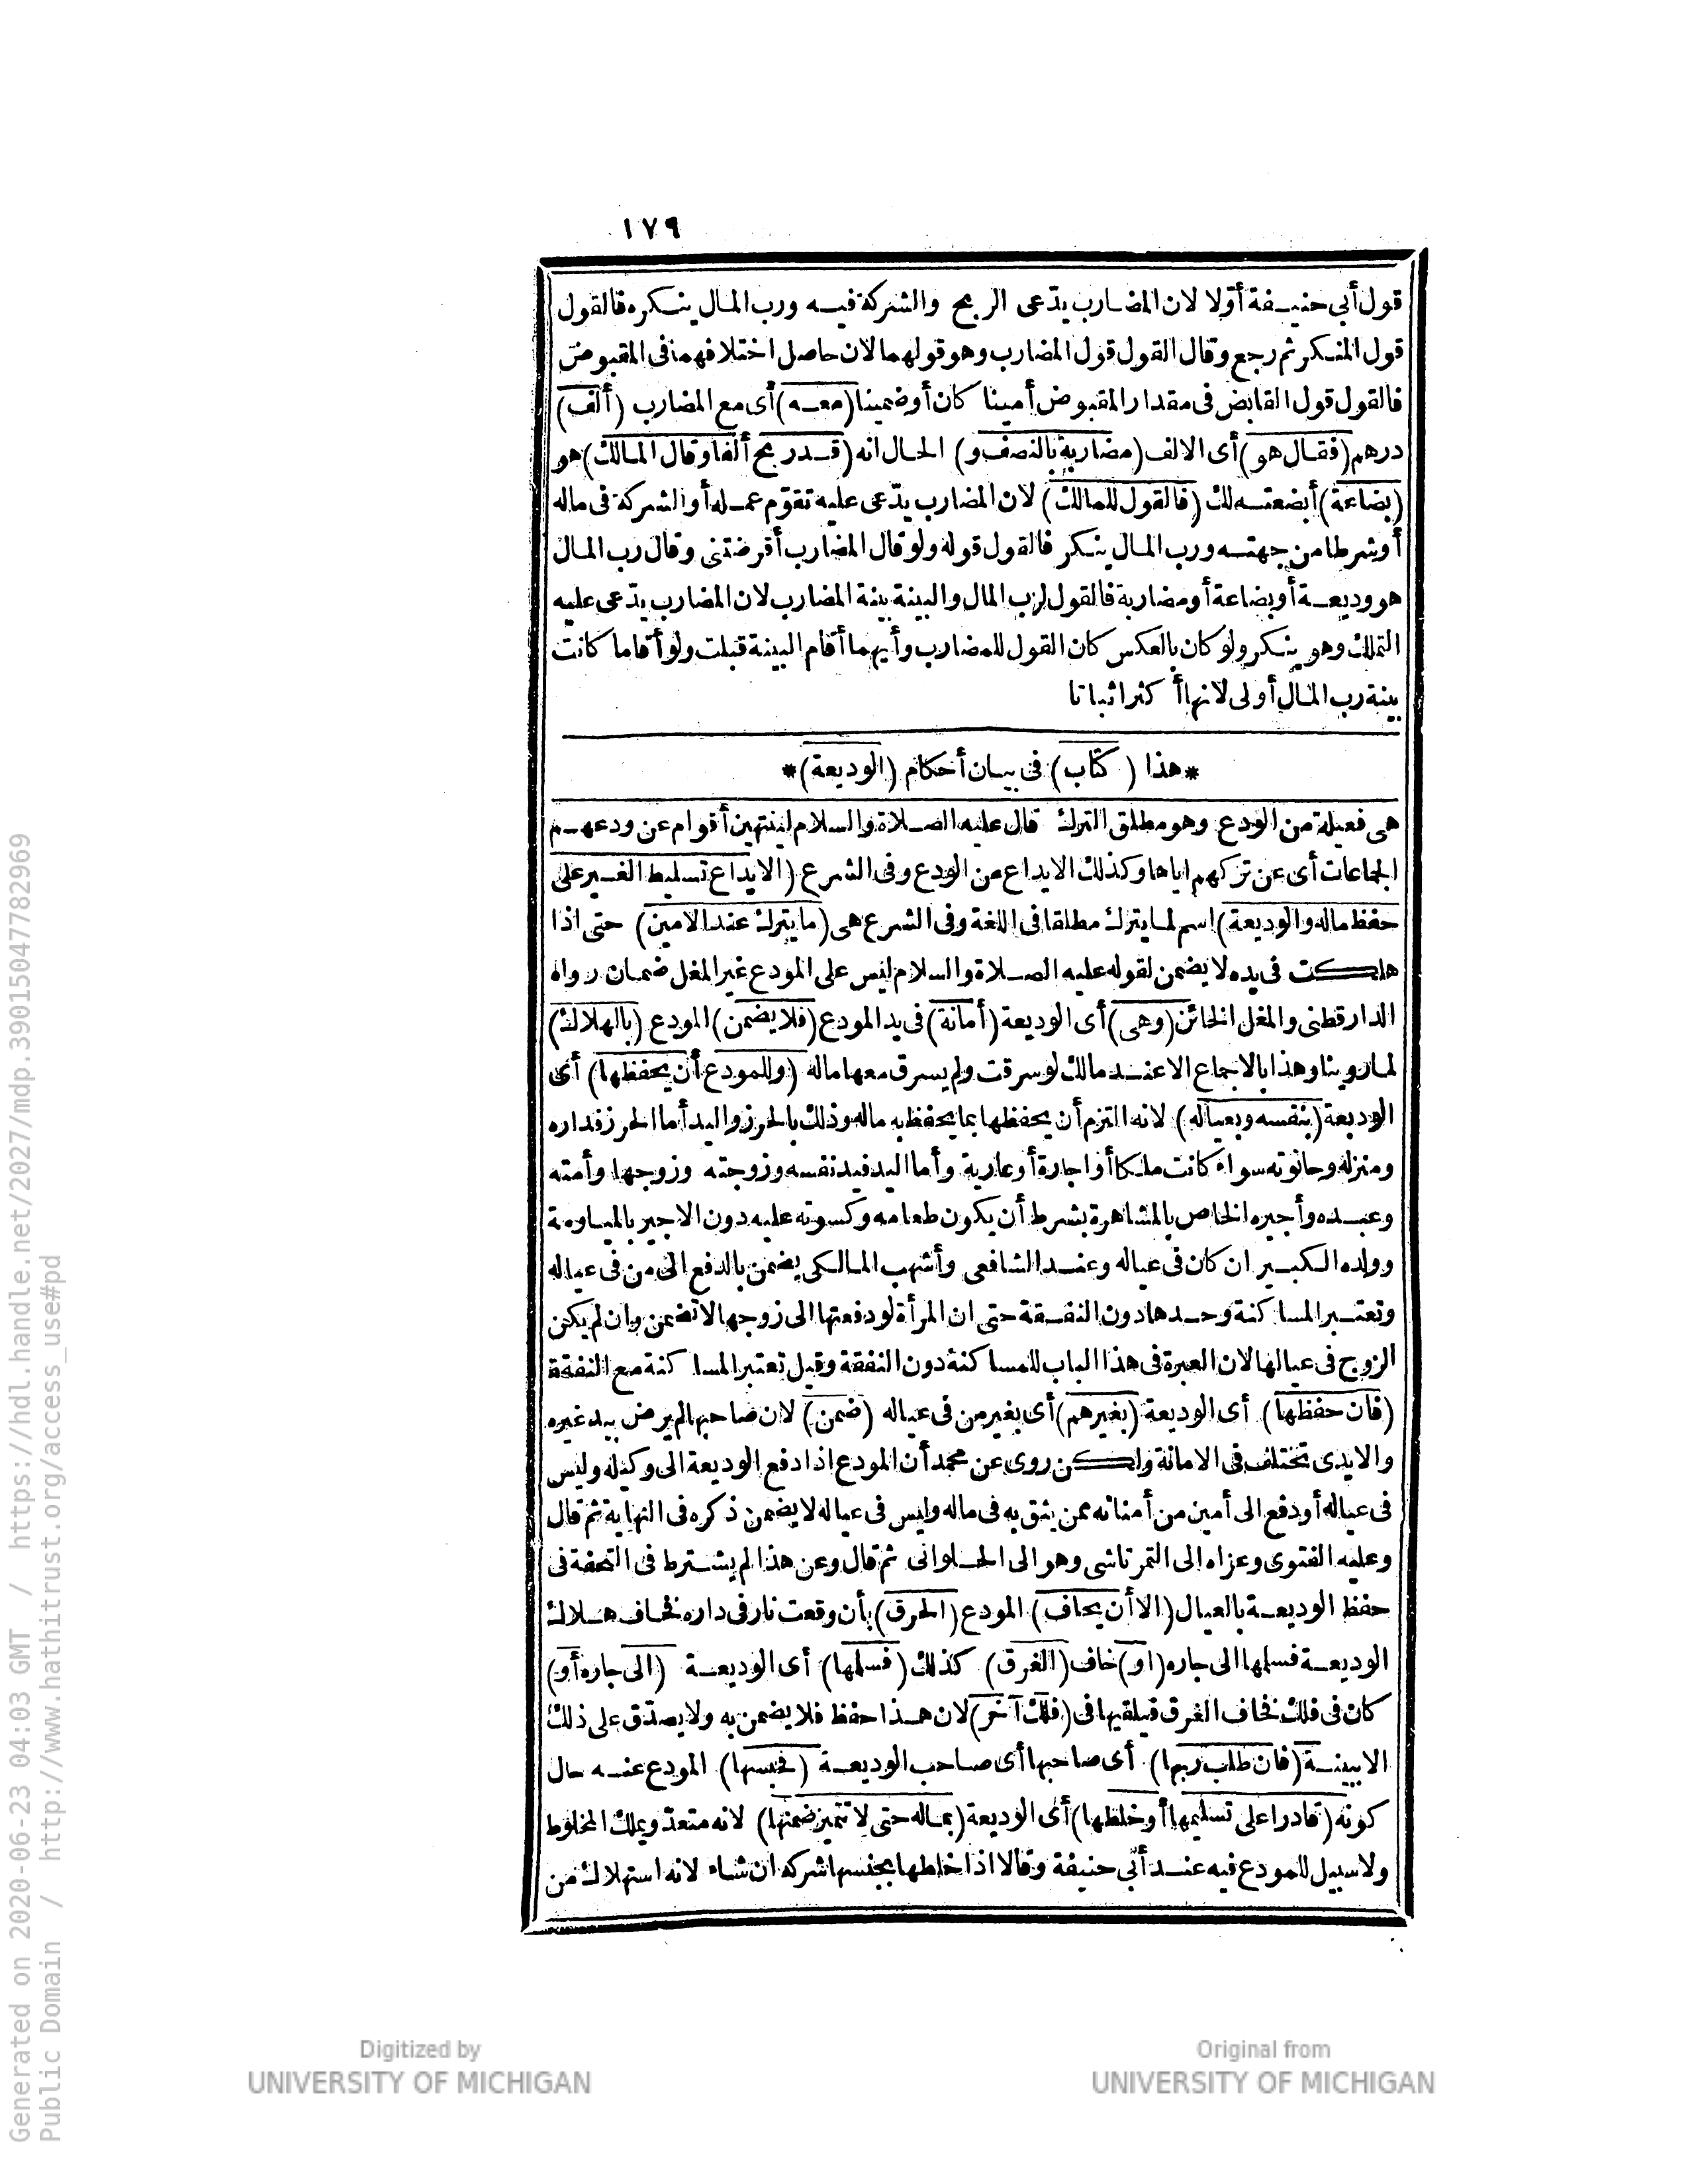 ١٧٩
قول أبى حنيفة أوّلا لان المضارب يدّعى الربح والشركة فيه ورب المال ينكره فالقول
قول المنكر ثم رجع وقال القول قول المضارب وهو قولهما لان حاصل اختلافهما فى المقبوض
فالقول قول القابض فى مقدار المقبوض أمينا كان أو ضمينا (معه) أى مع المضارب (ألف)
درهم (فقال هو) أى الالف (مضاربة بالنصف و) الحال انه (قد ربح ألفا وقال المالك) هو
(بضاعة) أبضعته لك (فالقول للمالك) لان المضارب يدّعى عليه تقوّم عمله أو الشركة فى ماله
أو شرطا من جهته ورب المال ينكر فالقول قوله ولو قال المضارب أقرضتنى وقال رب المال
هو وديعة أو بضاعة أو مضاربة فالقول لرب المال والبينة بينة المضارب لان المضارب يدّعى عليه
التملك وهو ينكر ولو كان بالعكس كان القول للمضارب وأيهما أقام البينة قبلت ولو أقاما كانت
بينة رب المال أولى لانها أكثر اثباتا
*هذا (كتاب) فى بيان أحكام (الوديعة)*
هى فعيلة من الودع وهو مطلق الترك قال عليه الصلاة والسلام لينتهين أقوام عن ودعهم
الجماعات أى عن تركهم اياها وكذلك الايداع من الودع وفى الشرع (الايداع تسليط الغير على
حفظ ماله والوديعة) اسم لما يترك مطلقا فى اللغة وفى الشرع هى (ما يترك عند الامين) حتى اذا
هلكت فى يده لا يضمن لقوله عليه الصلاة والسلام ليس على المودع غير المغل ضمان رواه
الدارقطنى والمغل الخائن (وهى) أى الوديعة (أمانة) فى يد المودع (فلا يضمن) المودع (بالهلاك)
لما روينا وهذا بالاجماع الا عند مالك لو سرقت ولم يسرق معها ماله (وللمودع أن يحفظها) أى
الوديعة (بنفسه وبعياله) لانه التزم أن يحفظها بما يحفظ به ماله وذلك بالحرز واليد أما الحرز فداره
ومنزله وحانوته سواء كانت ملكا أو اجارة أو عارية وأما اليد فيد نفسه وزوجته وزوجها وأمته
وعبده وأجيره الخاص بالمشاهرة بشرط أن يكون طعامه وكسوته عليه دون الاجير بالمياومة
وولده الكبير ان كان فى عياله وعند الشافعى وأشهب المالكى يضمن بالدفع الى من فى عياله
وتعتبر المساكنة وحدها دون النفقة حتى ان المرأة لو دفعتها الى زوجها لا تضمن وان لم يكن
الزوج فى عيالها لان العبرة فى هذا الباب للمساكنة دون النفقة وقيل تعتبر المساكنة مع النفقة
(فان حفظها) أى الوديعة (بغيرهم) أى بغير من فى عياله (ضمن) لان صاحبها لم يرض بيد غيره
والايدى تختلف فى الامانة ولكن روى عن محمد أن المودع اذا دفع الوديعة الى وكيله وليس
فى عياله أو دفع الى أمين من أمنائه ممن يثق به فى ماله وليس فى عياله لا يضمن ذكره فى النهاية ثم قال
وعليه الفتوى وعزاه الى التمرتاشى وهو الى الحلوانى ثم قال وعن هذا لم يشترط فى التحفة فى
حفظ الوديعة بالعيال (الا أن يخاف) المودع (الحرق) بأن وقعت نار فى داره فخاف هلاك
الوديعة فسلمها الى جاره (او) خاف (الغرق) كذلك (فسلمها) أى الوديعة (الى جاره أو)
كان فى فلك فخاف الغرق فيلقيها فى (فلك آخر) لان هذا حفظ فلا يضمن به ولا يصدّق على ذلك
الا ببينة (فان طلب ربها) أى صاحبها أى صاحب الوديعة (فحبسها) المودع عنه حال
كونه (قادرا على تسليمها أو خلطها) أى الوديعة (بماله حتى لا تتميز ضمنها) لانه متعدّ ويملك المخلوط
ولا سبيل للمودع فيه عند أبى حنيفة وقالا اذا خلطها بجنسها شركه ان شاء لانه استهلاك من
Digitized by
UNIVERSITY OF MICHIGAN
Original from
UNIVERSITY OF MICHIGAN
Generated on 2020-06-23 04:03 GMT / https://hdl.handle.net/2027/mdp.39015047782969
Public Domain / http://www.hathitrust.org/access_use#pd